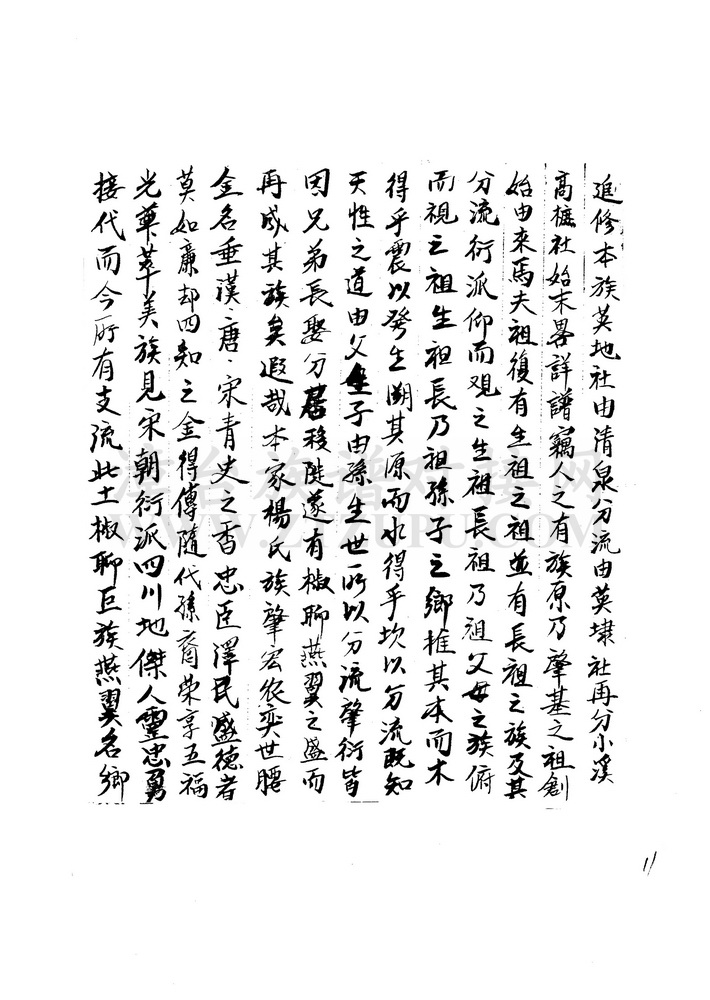 追修本族英地社由清泉分流由英埭社再分小溪
高樜社始末畧詳譜竊人之有族原乃肇基之祖創
始由來馬夫祖復有生祖之祖並有長祖之族及其
分流衍派仰而观之生祖長祖乃祖父母之族俯
而視之祖生祖長乃祖孫子之鄉推其本而木
得乎震以發生溯其源而水得乎坎以分流既知
天性之道由父生子由孫生世所以分流肇衍皆
因兄弟長娶分居移陡遂有椒聊燕翼之盛而
再成其族矣遐哉本家楊氏族肇宏农奕世腰
金名垂漢、唐、宋青史之香忠臣澤民盛德者
莫如廉却四知之金得傳隨代孫裔荣享五福
光華萃美族見宋朝衍派四川地傑人靈忠勇
接代而今所有支流此土椒聊巨族燕翼名鄉
11
漳台族谱对接网
WWW.ZTZUPU.COM